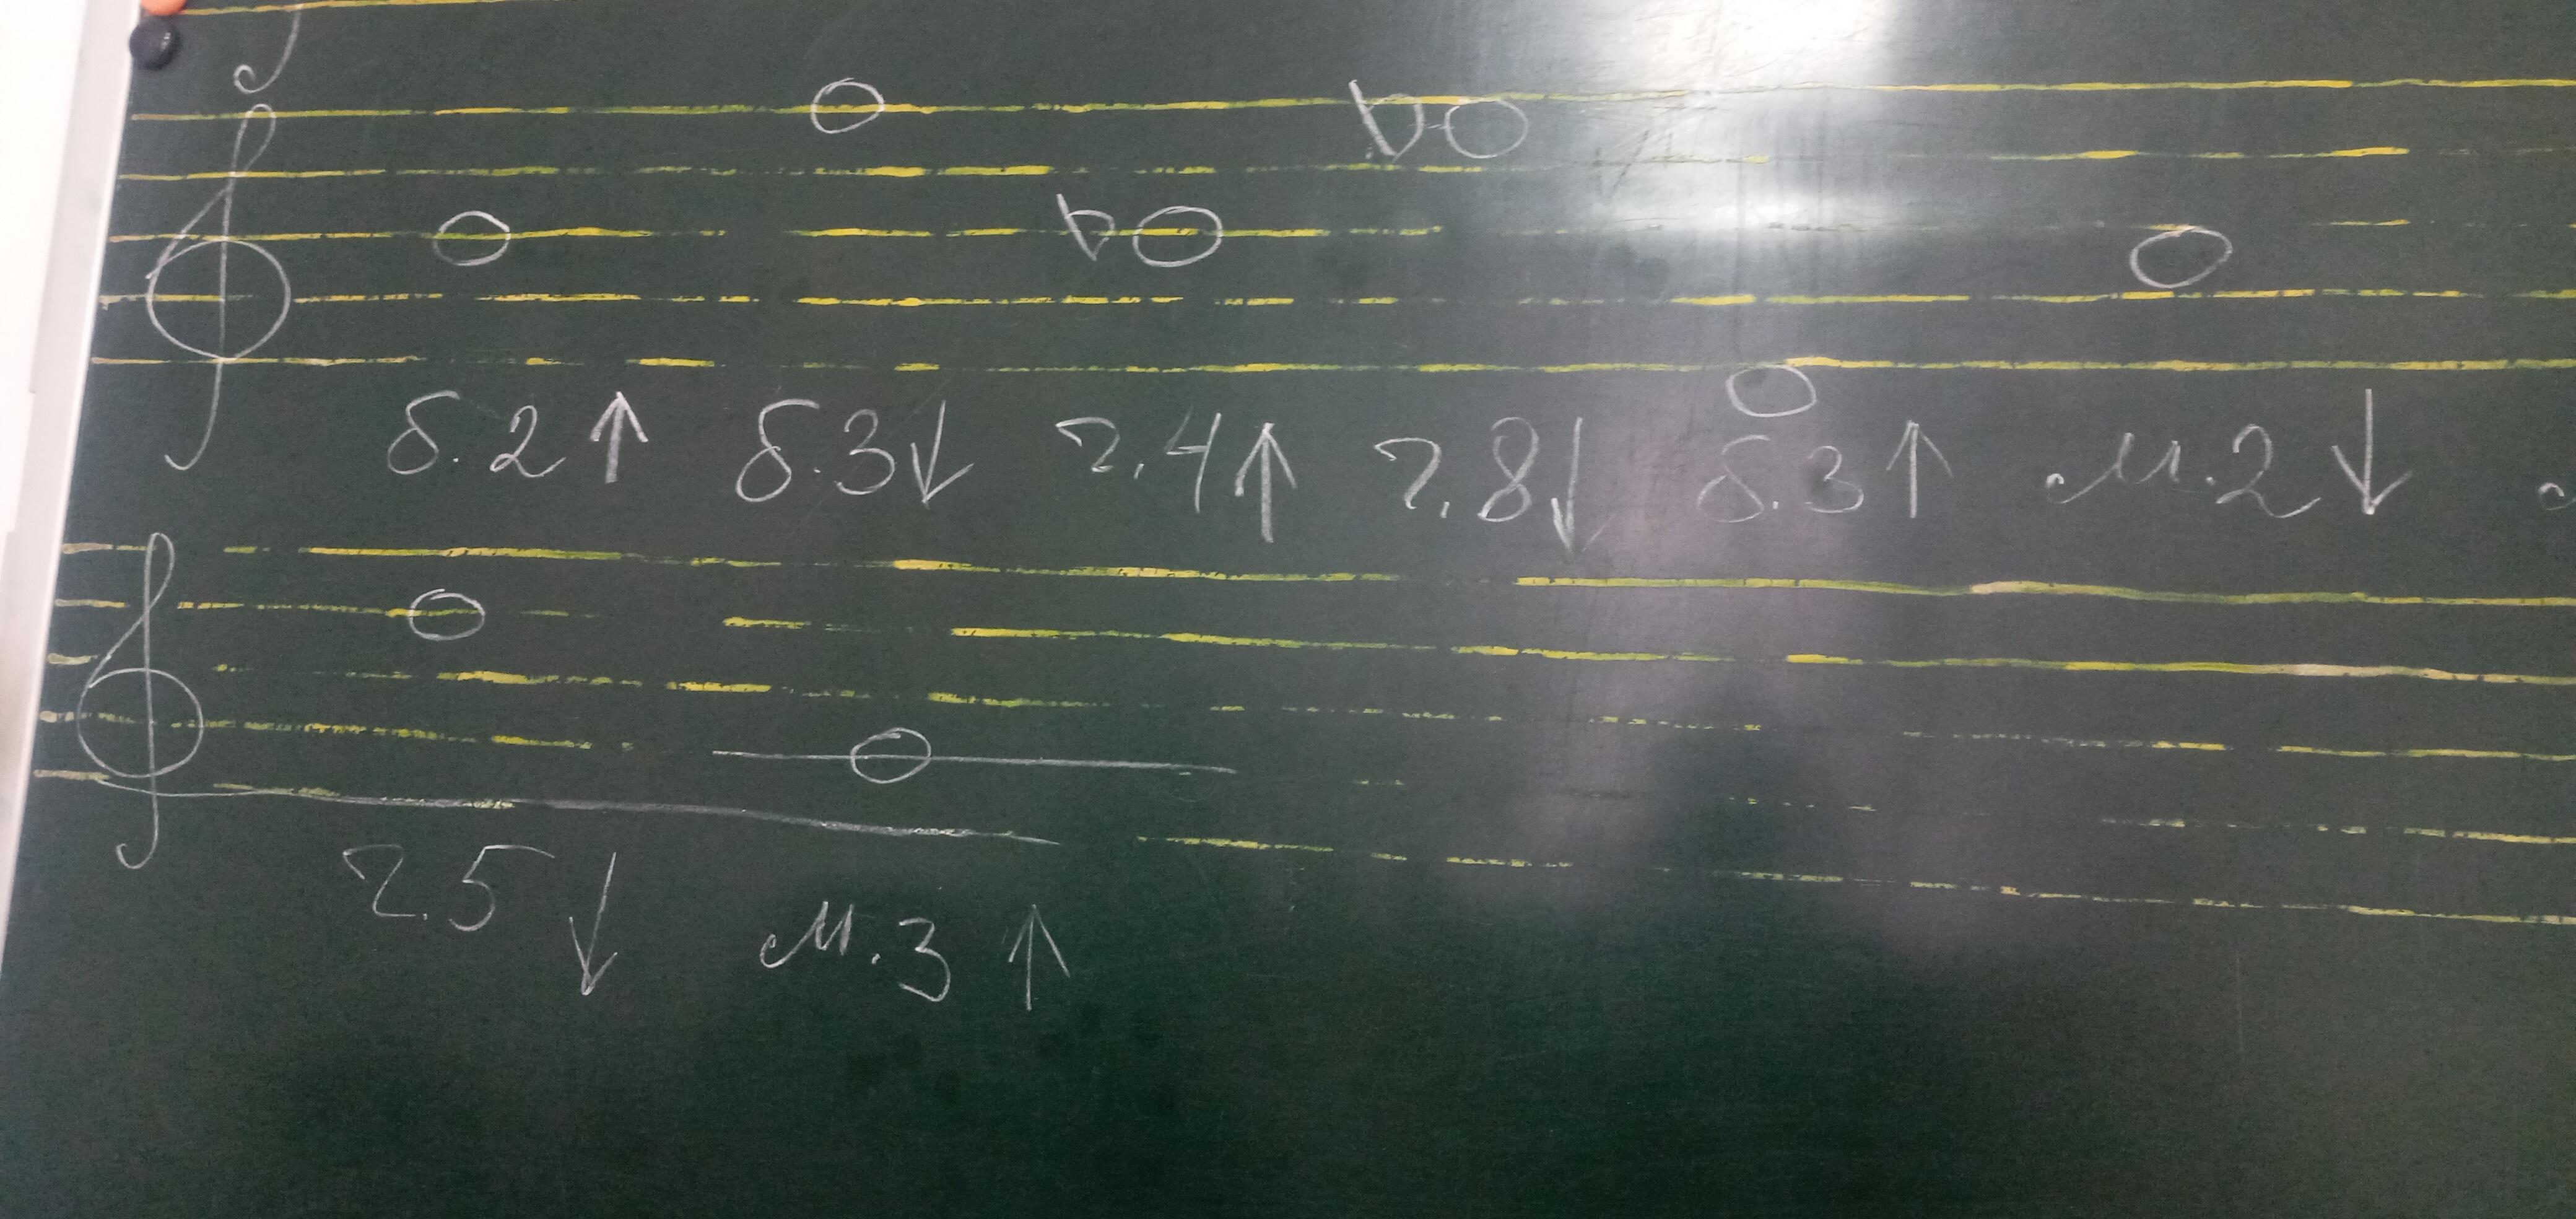 б.2↑ б.3↓ ч.4↑ ч.8↓ б.3↑ м.2↓
ч.5↓ м.3↑